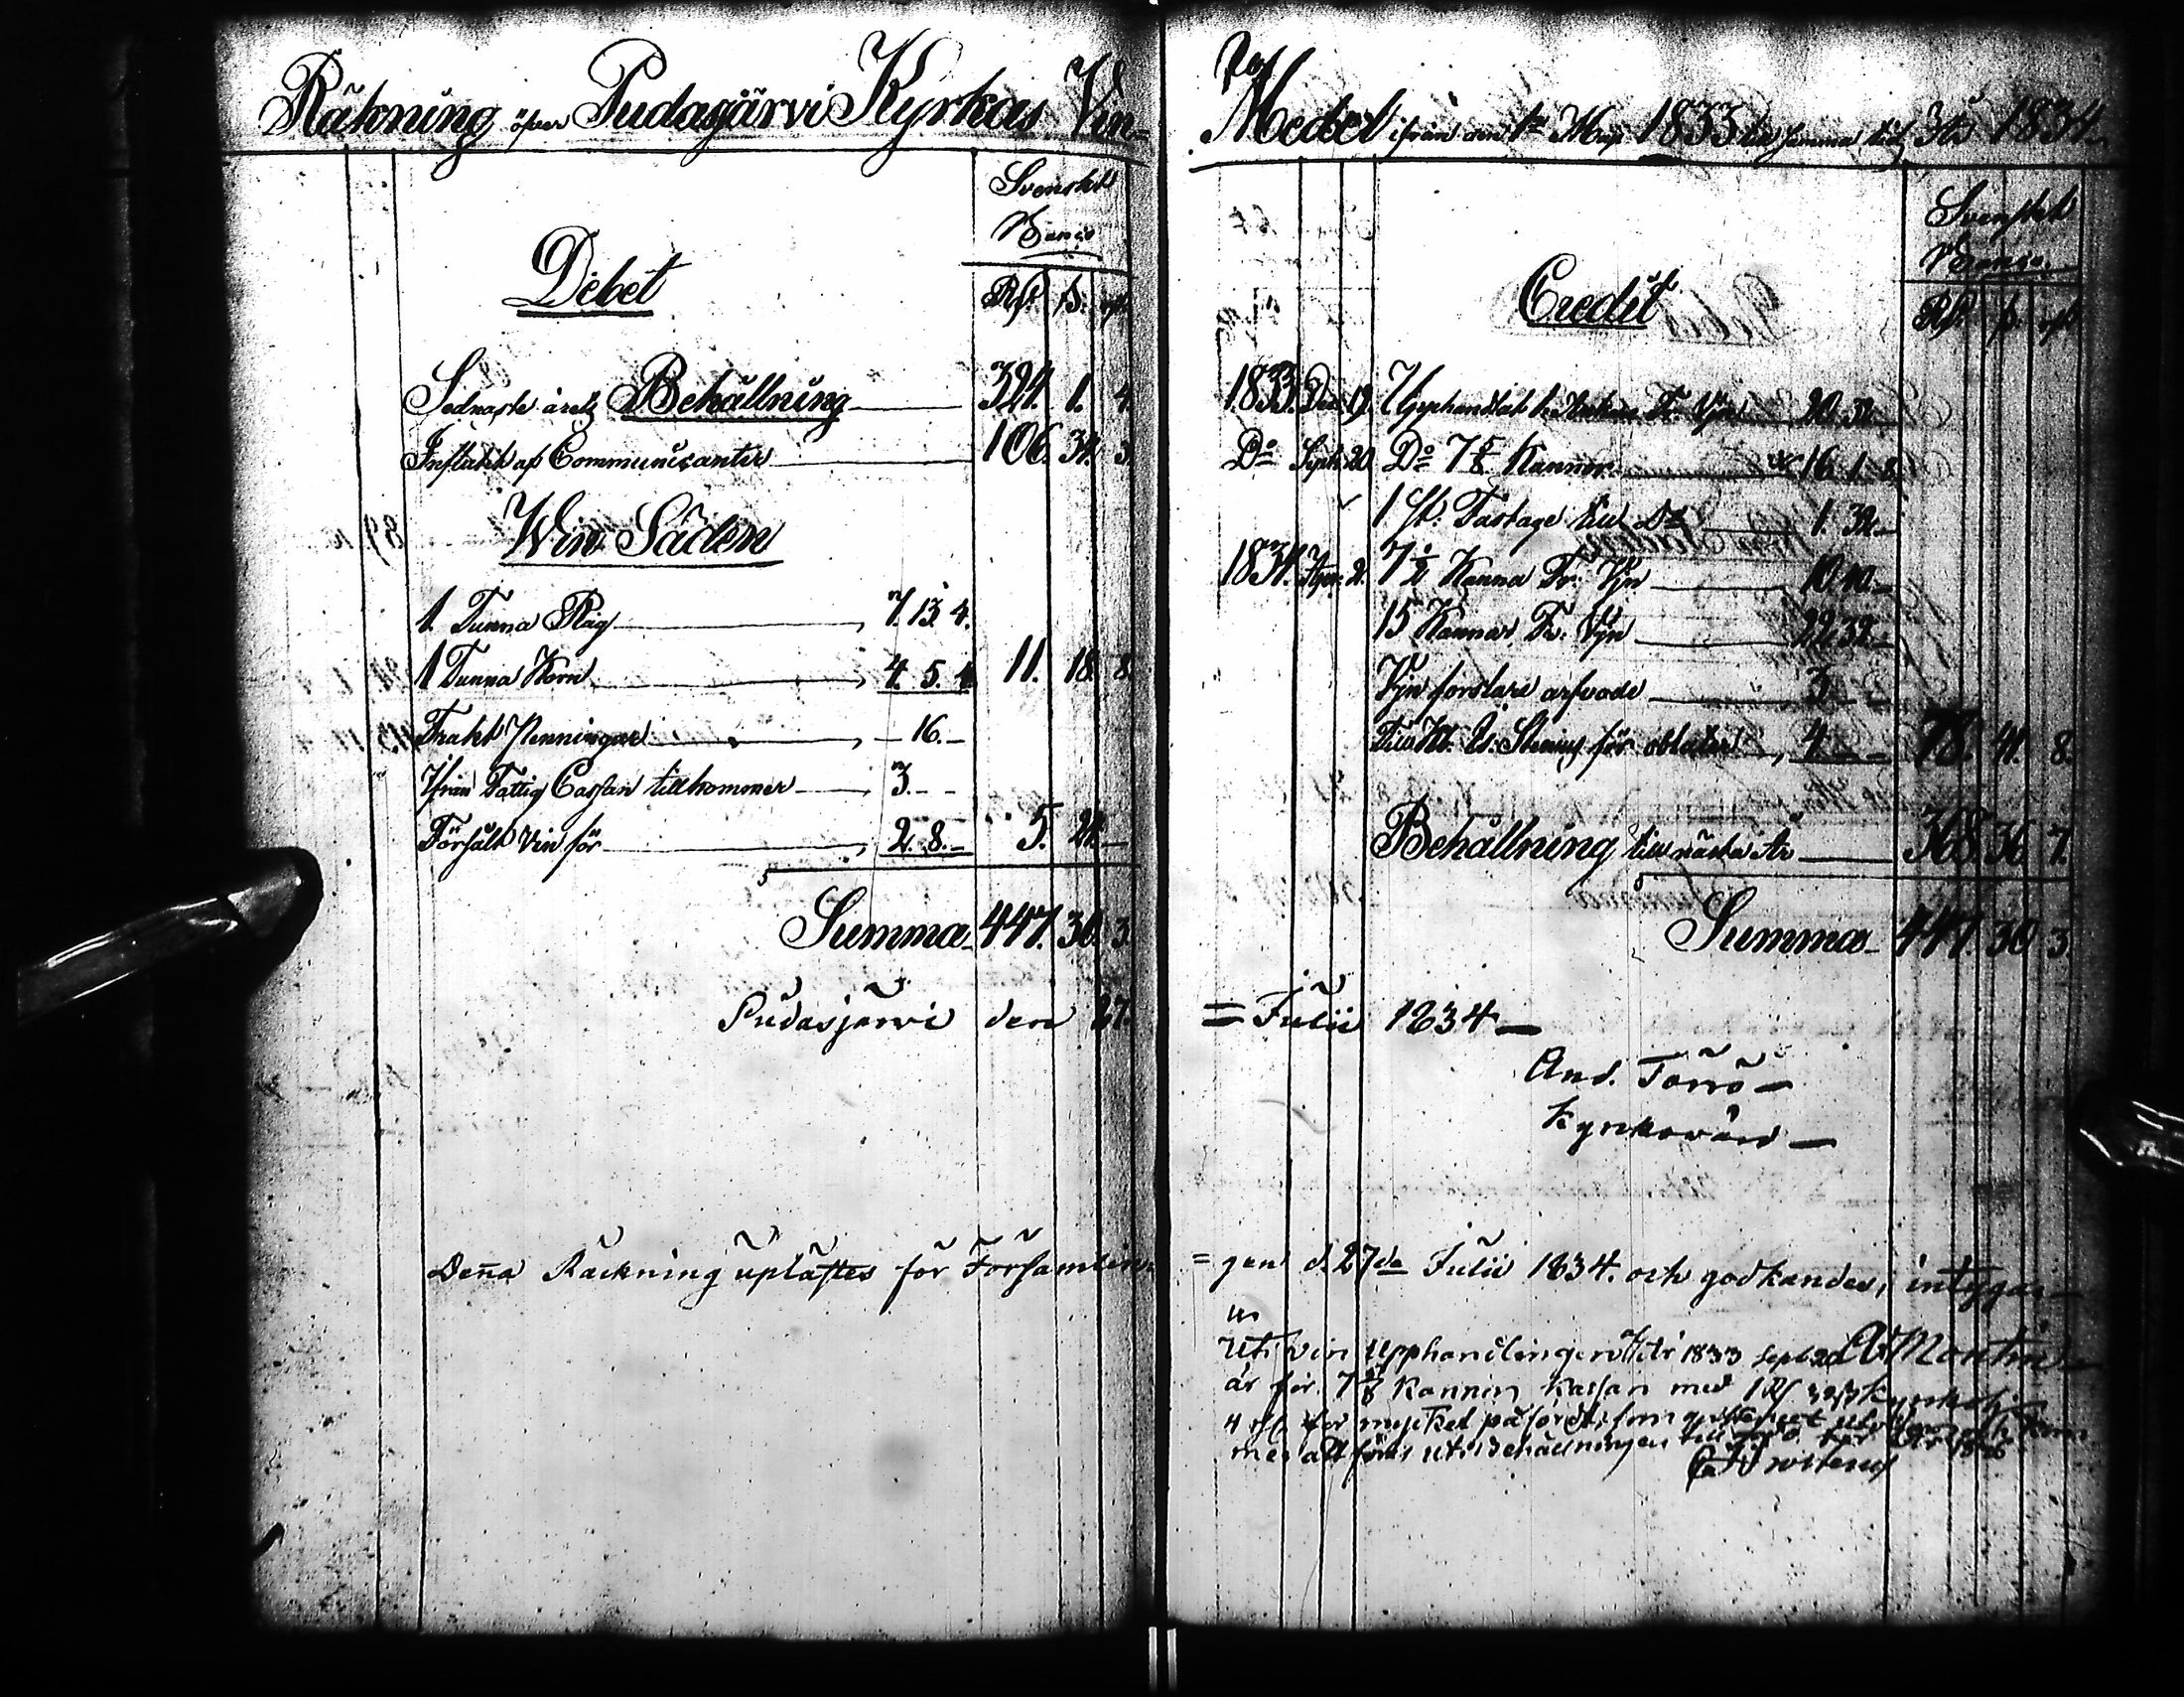 Räkning öfver Pudasjärvi Kyrkas Vin=
Svenskt
Banco
Debet
Rd. ß. rst.
Sednaste årets Behållning 324. 1. 4.
Influtit af Communicanter 106. 34. 3.
Win Säden
1. Tunna Råg 7. 13. 4.
1 Tunna Korn 4. 5. 4. 11. 18. 8.
Frakt Penningar - 16. -
Ifrån Fattig Cassan tillkommer 3. - -
Försålt Vin för 2. 8. - 5. 24. -
Summa 447. 30. 3.
Pudasjärvi den 27.
Denna Räckning uplästes för Församlin
Medel ifrån den 1sta Maji 1833 till samma tid 1834.
Svenskt
Banco.
Credit
Rd. ß. rst.
1833. 19. Upphandlat Fr. Vin 20. 32. -
Do Sept. 20. Do 7 5/8 Kannor 16. 1. 8.
1 st. Fastage till Do 1. 32. -
1834. 2. 7 1/2 Kanna Fr. Vin 10. 10. -
15 Kannor Fr. Vin 22. 32. -
Vin forslare arfvode 3. - -
Till för oblater 4. - - 78. 41. 8.
Behållning till nästa År 368. 36. 7.
Summa 447. 30. 3.
= Julii 1834 —
And. Törrö —
Kyrkovärd —
= gen d. 27de Julii 1834. och godkändes, intygar
Uti vin Upphandlingen År 1833 Sept. 20
är för 7 5/8 Kannin Kassan med 1 Rd
4 rst. för mycket påförd,
mer att föras uti behållningen